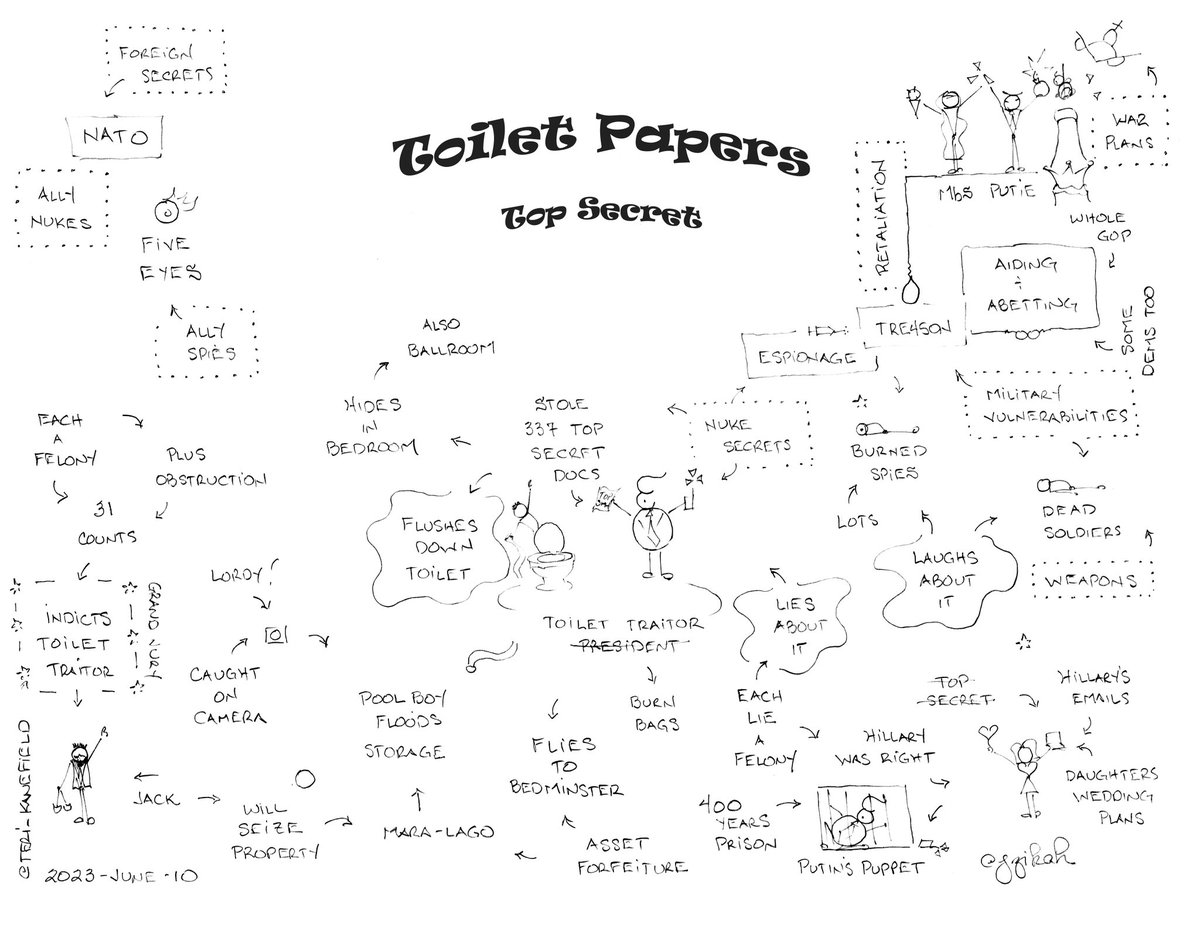 Toilet Papers
Top Secret
FOREIGN
SECRETS
NATO
ALLY
NUKES
FIVE
EYES
ALLY
SPIES
EACH
A
FELONY
PLUS
OBSTRUCTION
31
COUNTS
INDICTS
TOILET
TRAITOR
GRAND JURY
LORDY!
CAUGHT
ON
CAMERA
JACK
WILL
SEIZE
PROPERTY
@TERI-KANEFIELD
2023-JUNE-10
ALSO
BALLROOM
HIDES
IN
BEDROOM
STOLE
337 TOP
SECRET
DOCS
FLUSHES
DOWN
TOILET
TOILET TRAITOR
PRESIDENT
POOL BOY
FLOODS
STORAGE
MARA-LAGO
BURN
BAGS
FLIES
TO
BEDMINSTER
ASSET
FORFEITURE
NUKE
SECRETS
ESPIONAGE
TRE45ON
RETALIATION
MbS PUTIE
WHOLE
GOP
WAR
PLANS
AIDING
+
ABETTING
SOME
DEMS TOO
MILITARY
VULNERABILITIES
BURNED
SPIES
LOTS
DEAD
SOLDIERS
WEAPONS
LAUGHS
ABOUT
IT
LIES
ABOUT
IT
EACH
LIE
A
FELONY
HILLARY
WAS RIGHT
TOP
SECRET
HILLARY'S
EMAILS
DAUGHTERS
WEDDING
PLANS
400
YEARS
PRISON
PUTIN'S PUPPET